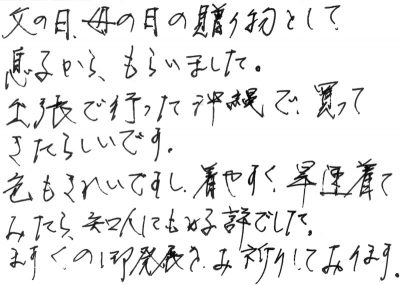 父の日、母の日の贈り物として
息子から、もらいました。
出張で行った沖縄で、買って
きたらしいです。
色もきれいですし、着やすく、早速着て
みたら、知人にも好評でした。
ますくの御発展をお祈りしております。